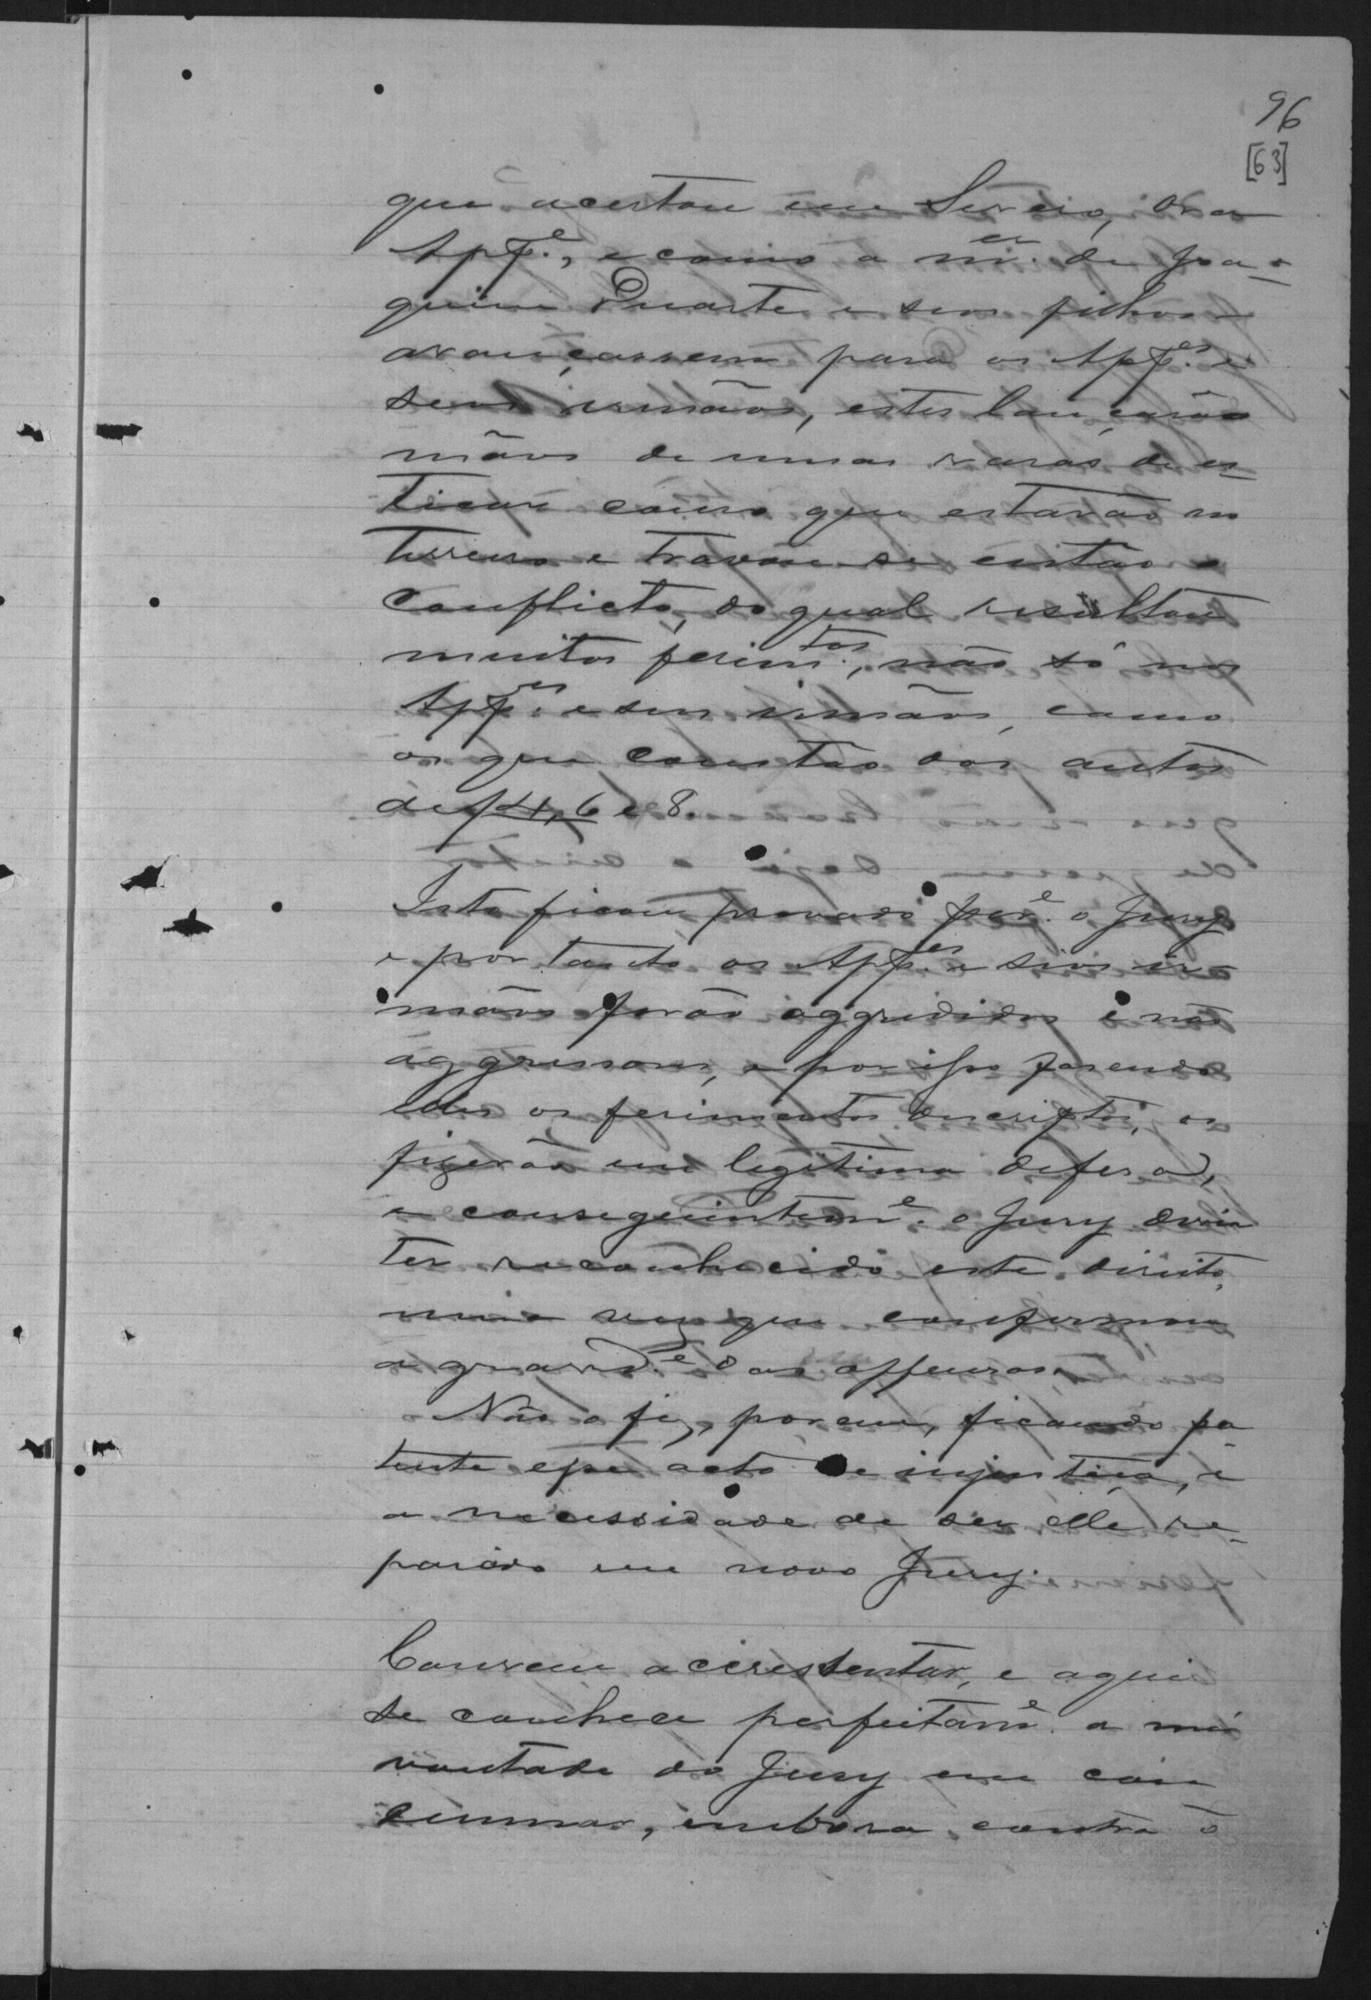 96
[63]
que acertou em Sercio, ora
App.e, e como a m.er de Joa-
quim Duarte e seos filhos
avançassem para os App.es e
seus irmãos, estes lançarão
mãos de umas varas de es-
ticar couro que estavão no
terreiro e travou-se então o
conflicto, do qual resultou
muitos ferim.tos, não só nos
App.es e seus irmãos, como
os que constão dos autos
de f 4, 6 e 8.
Isto ficou provado per.e o Jury
e por tanto os App.es e seos ir-
mãos forão aggredidos e não
aggressores, e por isso fasendo
elles os ferimentos descriptos, os
fizerão em legitima defesa,
e conseguintem.e o Jury devia
ter reconhecido este direito,
uma vez que confirmou
a gravid.e das offensas.
Não o fez, porem, ficando pa
tente esse acto de injustiça, e
a necessidade de ser elle re-
parado em novo Jury.
Convem accrescentar, e aqui
se conhece perfeitam.e a má
vontade do Jury em con
demnar, embora contra o